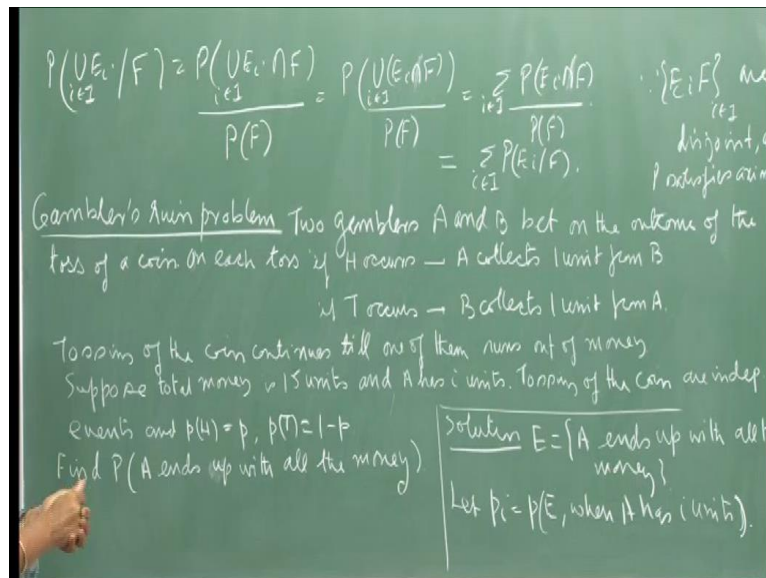 P(∪_{i∈I} E_i / F) = P(∪_{i∈I} E_i ∩ F) / P(F) = P(∪_{i∈I} (E_i ∩ F)) / P(F) = Σ_{i∈I} P(E_i ∩ F) / P(F) ∵ {E_i F}_{i∈I}
= Σ_{i∈I} P(E_i / F). disjoint,
P satisfies
Gambler's ruin problem Two gamblers A and B bet on the outcome of the
toss of a coin. On each toss if H occurs — A collects 1 unit from B
if T occurs — B collects 1 unit from A.
Tossing of the coin continues till one of them runs out of money
Suppose total money is 15 units and A has i units. Tossing of the coin are indep.
events and p(H) = p, p(T) = 1-p
Find P(A ends up with all the money)
Solution E = {A ends up with all
money}
Let p_i = p(E, when A has i units).